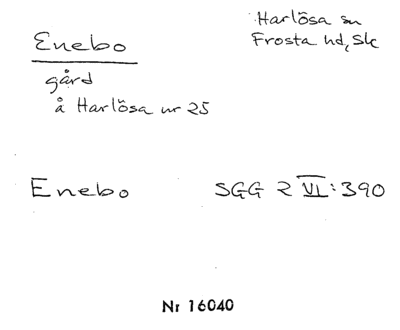 Enebo
Harlösa sn
Frosta hd, Sk
gård
å Harlösa nr 25
Enebo SGG 2 VI:390
Nr 16040